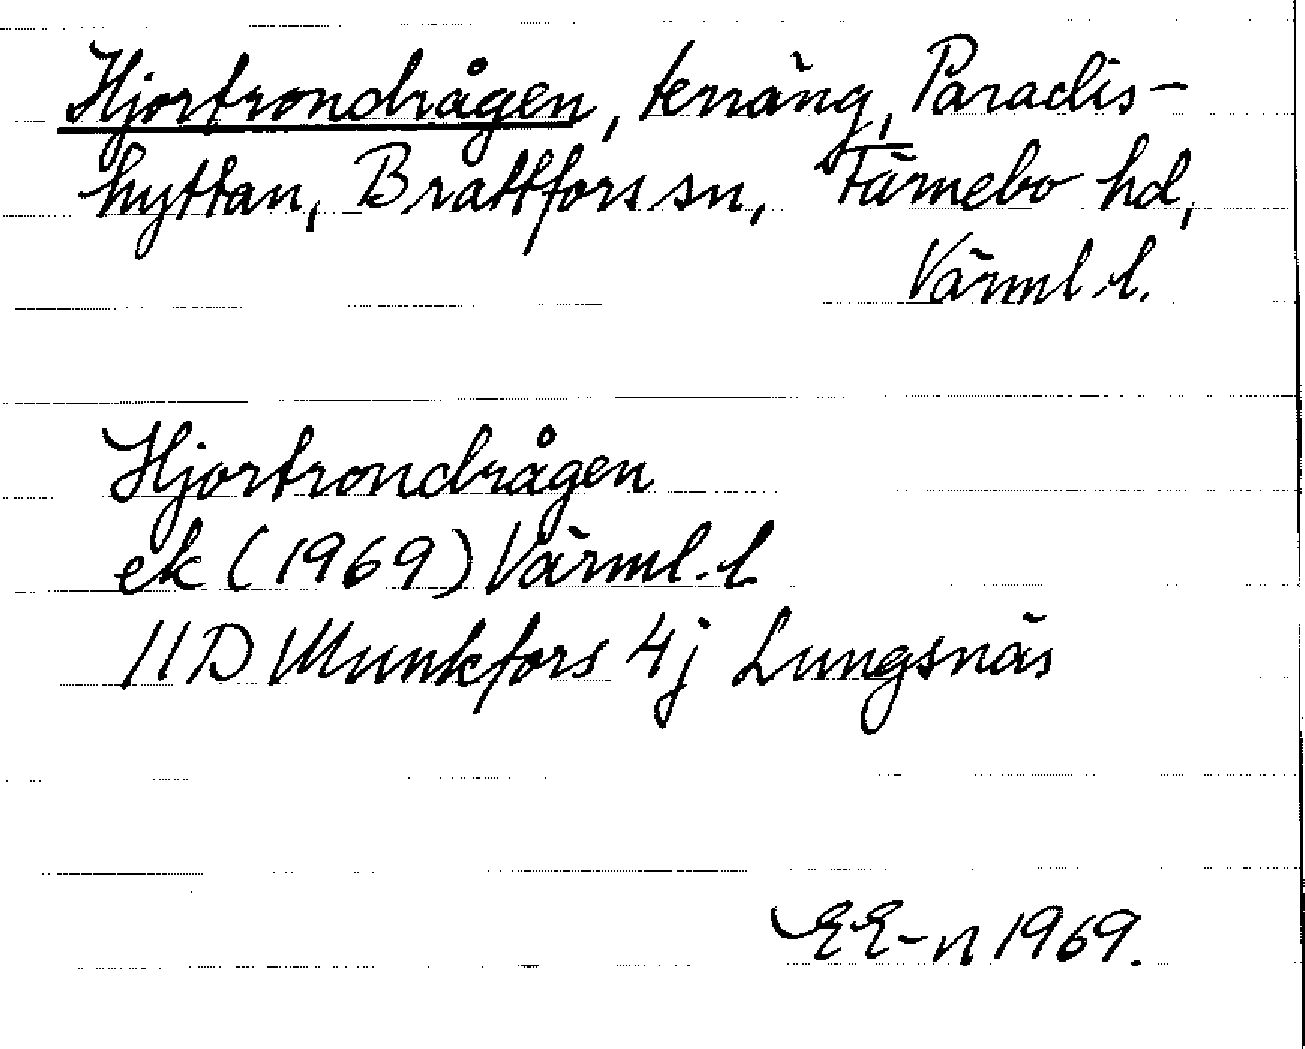 Hjortrondrågen, terräng, Paradis-
hyttan, Brattfors sn, Färnebo hd,
Värml. l.
Hjortrondrågen
ek (1969) Värml. l
11D Munkfors 4j Lungsnäs
EE-n 1969.